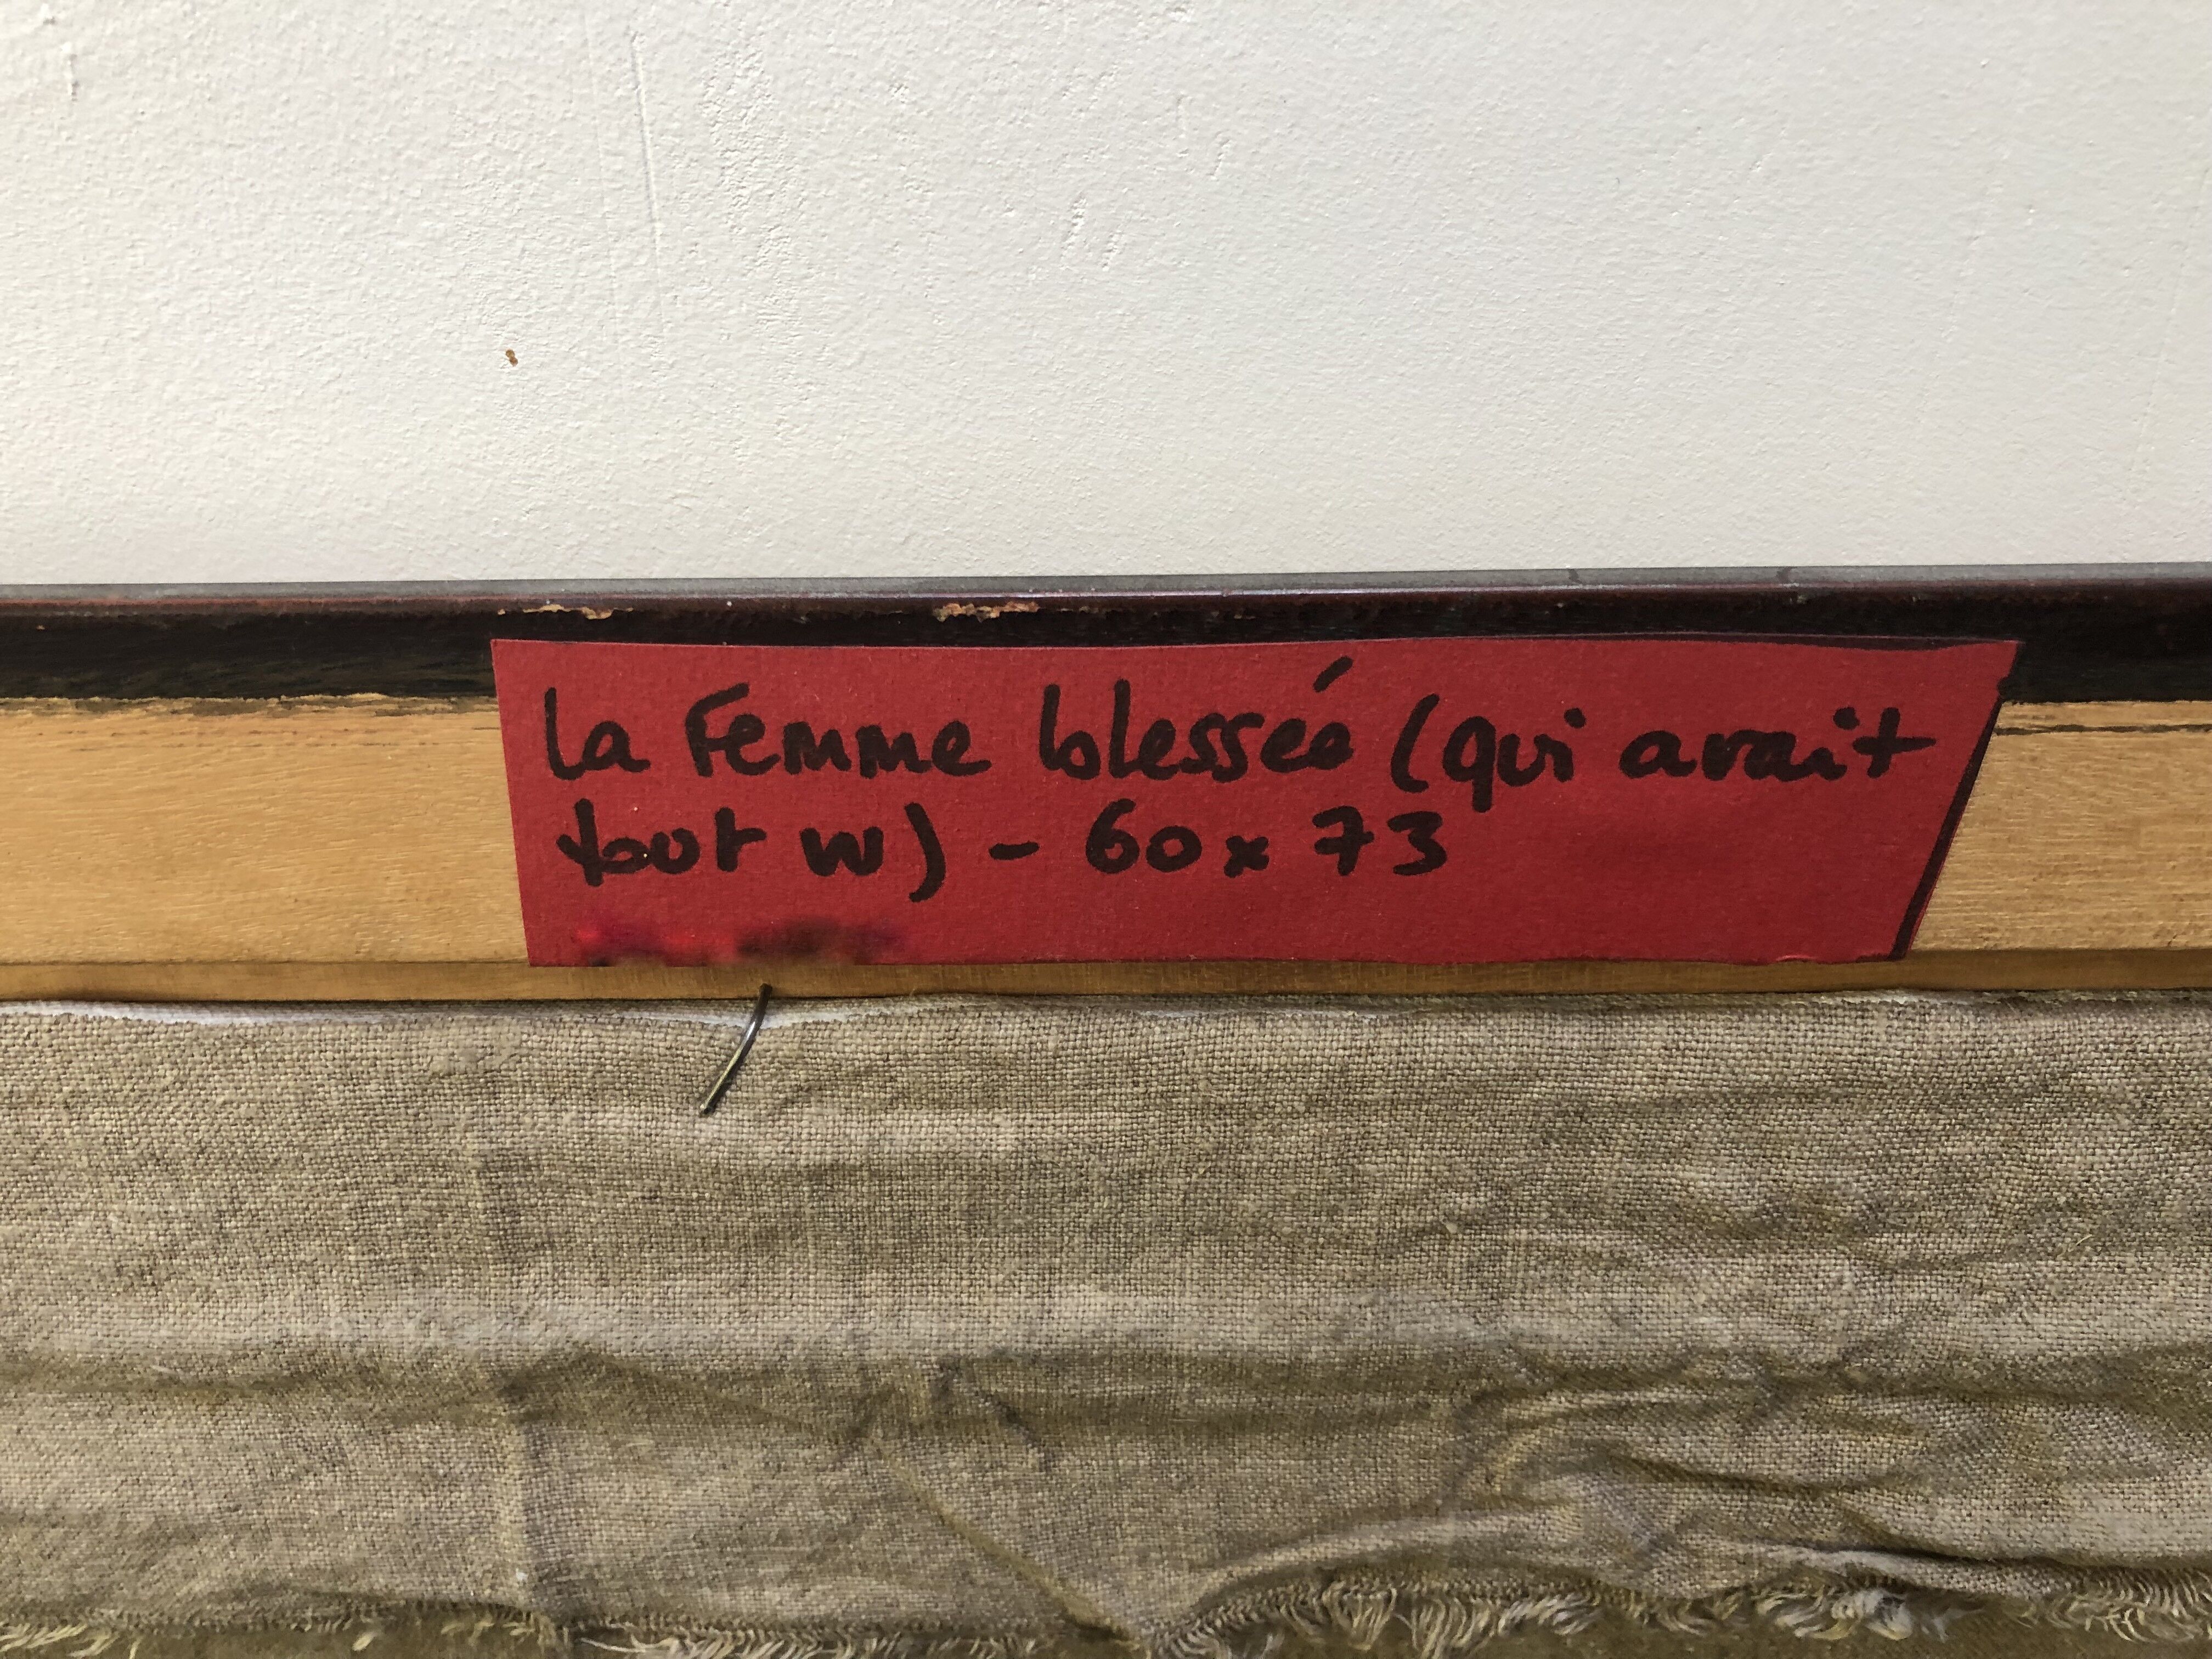 La Femme blessée (qui avait
tout vu) - 60 x 73